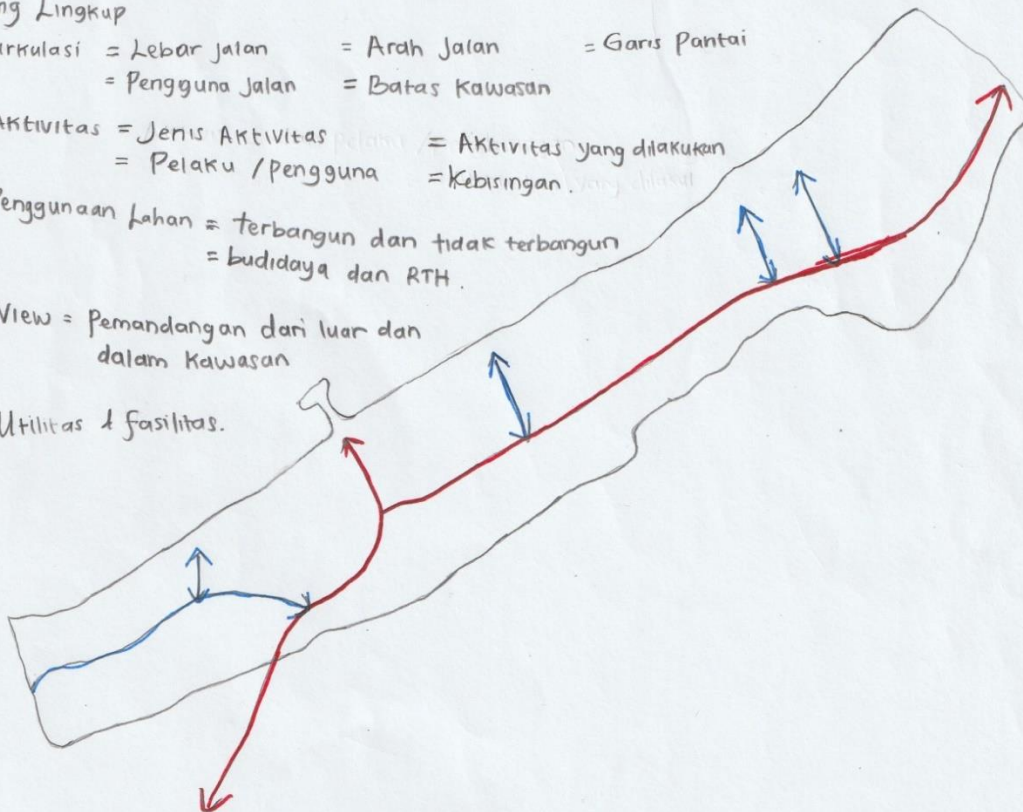 ng Lingkup
irkulasi = Lebar jalan = Arah Jalan = Garis Pantai
= Pengguna Jalan = Batas Kawasan
Aktivitas = Jenis Aktivitas = Aktivitas yang dilakukan
= Pelaku / pengguna = Kebisingan.
enggunaan Lahan = terbangun dan tidak terbangun
= budidaya dan RTH.
View = Pemandangan dari luar dan
dalam Kawasan
Utilitas & fasilitas.